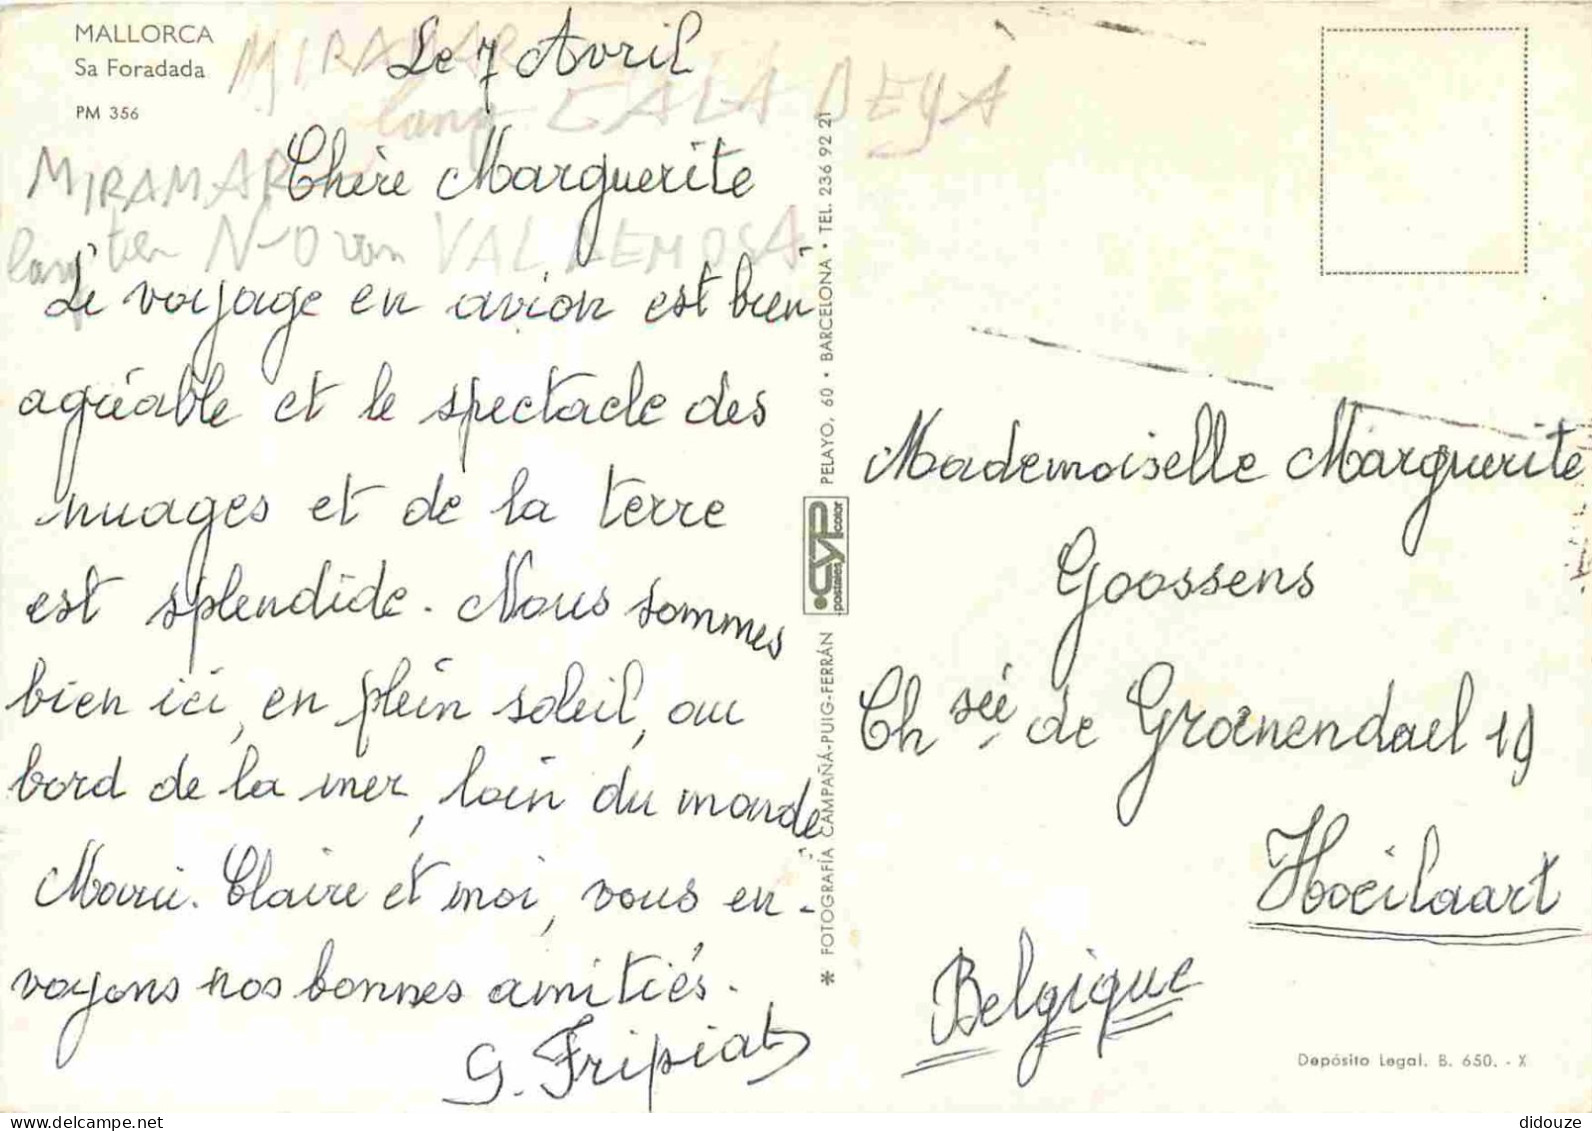 MALLORCA
Sa Foradada
PM 356
MIRAMAR
lang CALA DEYA
MIRAMAR
lang ten N-O van VALDEMOSA
Le 7 Avril
Chère Marguerite
Le voyage en avion est bien
agréable et le spectacle des
nuages et de la terre
est splendide. Nous sommes
bien ici, en plein soleil, au
bord de la mer, loin du monde
Marie. Claire et moi, vous en-
voyons nos bonnes amitiés.
G. Fripiat
* FOTOGRAFÍA CAMPAÑÁ-PUIG-FERRÁN
postales color CYP
PELAYO, 60 • BARCELONA • TEL. 236 92 21
Mademoiselle Marguerite
Goossens
Chsée de Groenendael 19
Hoeilaart
Belgique
Depósito Legal. B. 650. - X
didouze